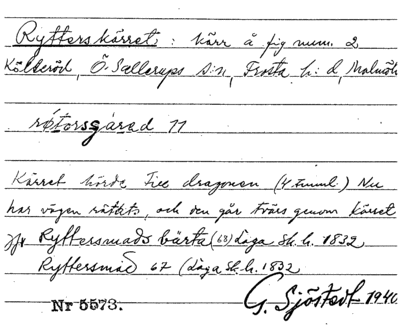 Rytterskärret: kärr å fig num. 2
Kölleröd, Ö. Sallerups s:n, Frosta h:d, Malmöh
11
Kärret hörde till dragonen (4 tunnl.) Nu
har vägen rättats, och den går tvärs genom kärret
jfr Ryttersmads bärta (68) Laga sk. h. 1832
Ryttersmad 67 (Laga sk. h. 1832
Nr 5573. G. Sjöstedt 1940